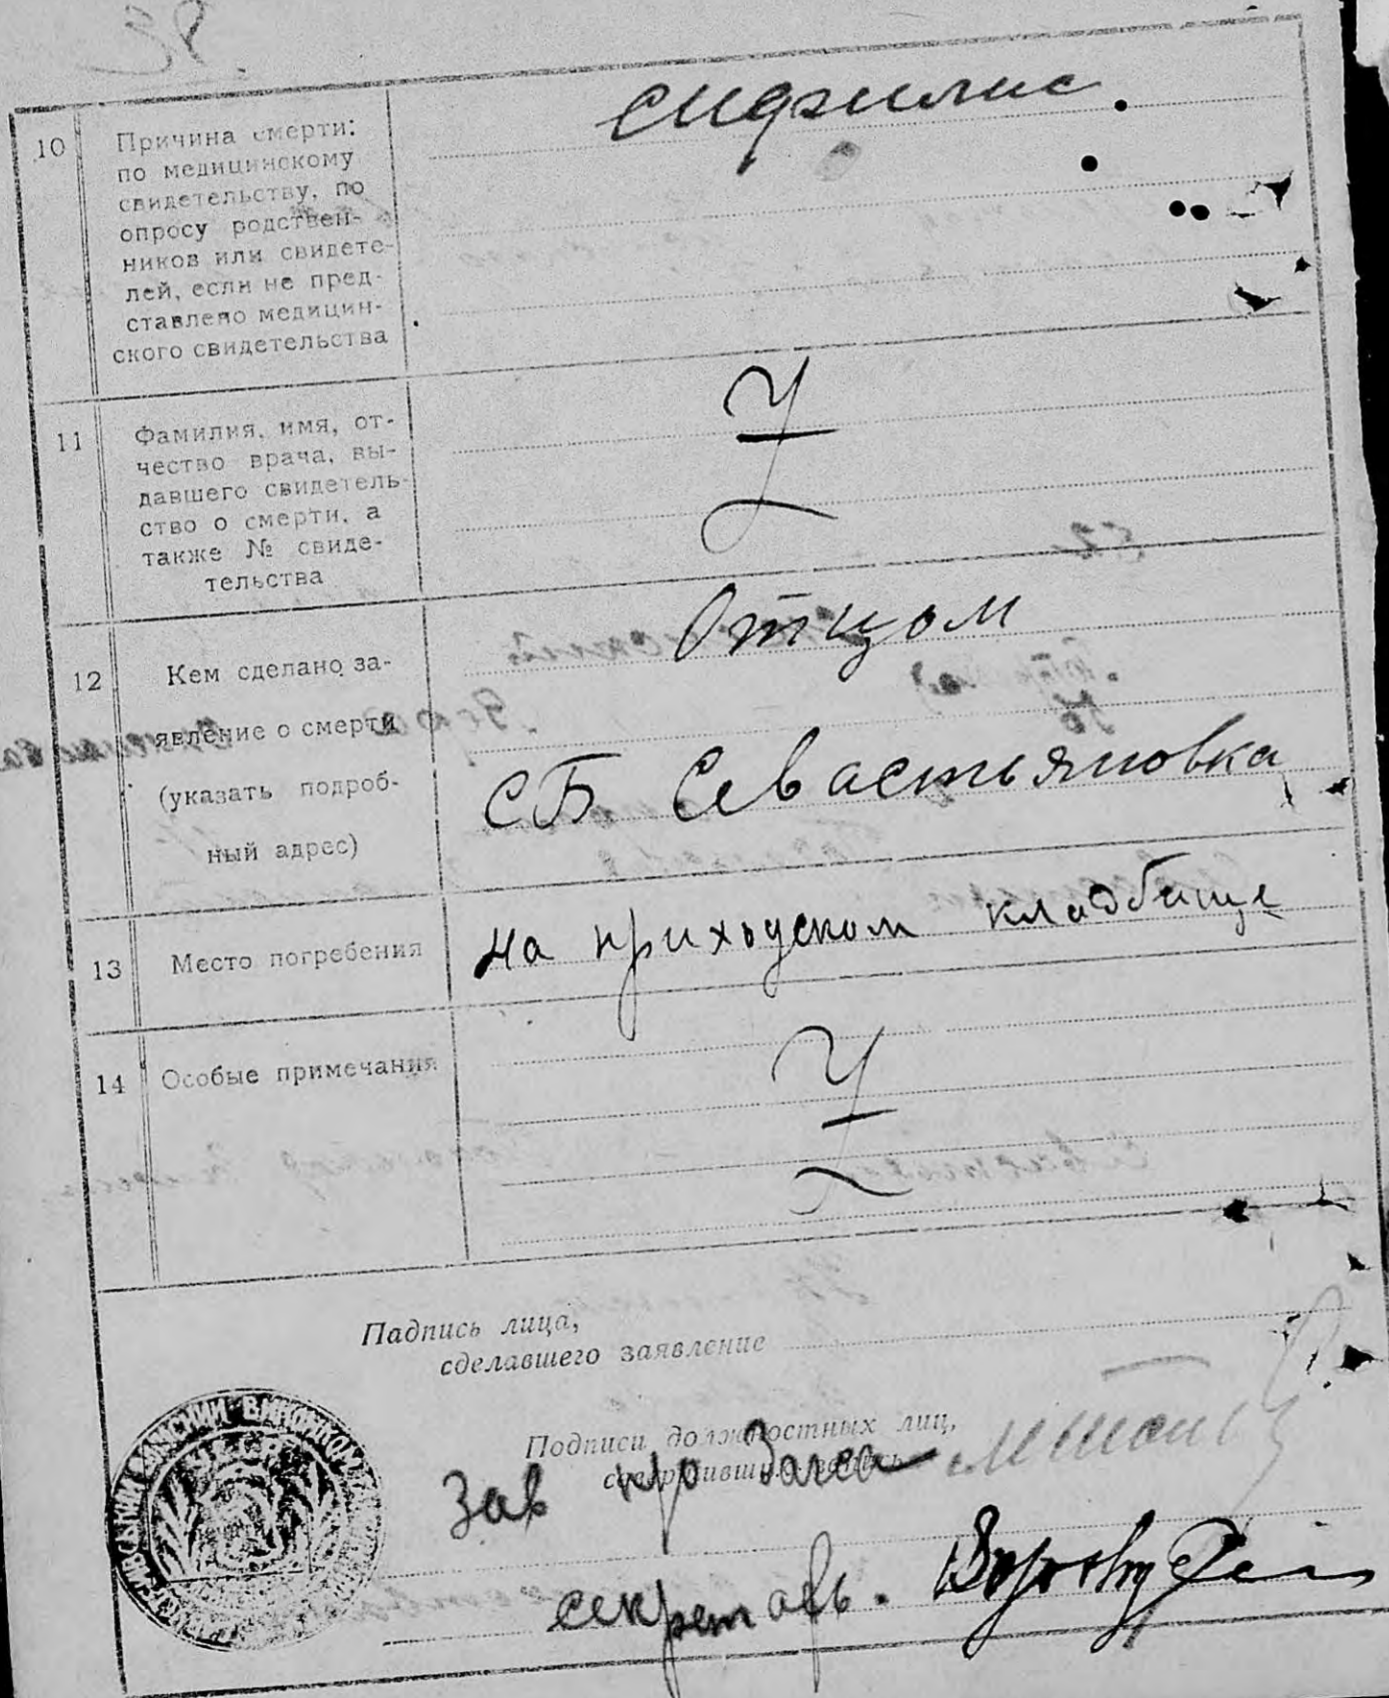 10 Причина смерти:
по медицинскому
свидетельству, по
опросу родствен-
ников или свидете-
лей, если не пред-
ставлено медицин-
ского свидетельства
сифилис.
11 Фамилия, имя, от-
чество врача, вы-
давшего свидетель-
ство о смерти, а
также № свиде-
тельства
12 Кем сделано за-
явление о смерти
(указать подроб-
ный адрес)
Отцом
СБ Севастьяновка
13 Место погребения
на приходском кладбище
14 Особые примечания
Падпись лица,
сделавшего заявление
Подписи должностных лиц,
Зав бюро Загса
секретарь.